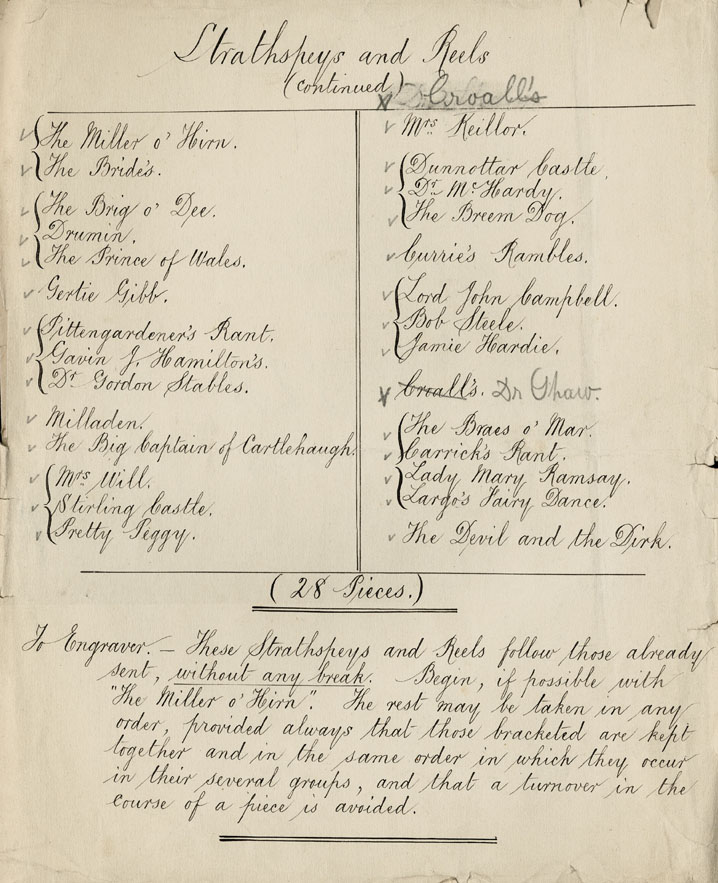 Strathspeys and Reels
(continued)
Dr Croall's
The Miller o' Hirn.
The Bride's.
The Brig o' Dee.
Drumin.
The Prince of Wales.
Gertie Gibb.
Pittengardener's Rant.
Gavin J. Hamilton's.
Dr Gordon Stables.
Milladen.
The Big Captain of Cartlehaugh.
Mrs Will.
Stirling Castle.
Pretty Peggy.
Mrs Keillor.
Dunnottar Castle.
Dr McHardy.
The Breem Dog.
Currie's Rambles.
Lord John Campbell.
Bob Steele.
Jamie Hardie.
Croall's. Dr Shaw.
The Braes o' Mar.
Carrick's Rant.
Lady Mary Ramsay.
Largo's Fairy Dance.
The Devil and the Dirk.
(28 Pieces.)
To Engraver. — These Strathspeys and Reels follow those already
sent, without any break. Begin, if possible with
"The Miller o' Hirn". The rest may be taken in any
order, provided always that those bracketed are kept
together and in the same order in which they occur
in their several groups, and that a turnover in the
course of a piece is avoided.